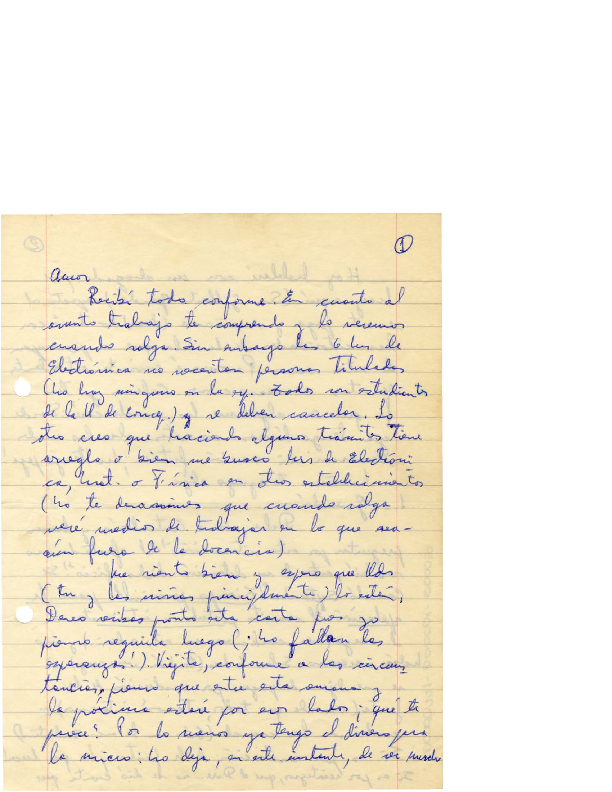 ①
Amor
Recibí todo conforme. En cuanto al
asunto trabajo te comprendo y lo veremos
cuando salga. Sin embargo las 6 hrs de
Electrónica no necesitan personas Tituladas
(No hay ninguno en la esp. Todos son estudiantes
de la U de Conce.) y se deben cancelar. Lo
otro creo que haciendo algunos trámites tiene
arreglo o bien me busco hrs de Electróni
ca, Mat. o Física en otros establecimientos
(No te desanimes que cuando salga
veré medios de trabajar en lo que sea-
aún fuera de la docencia)
Me siento bien y espero que Uds
(Tu y las niñas principalmente) lo estén.
Deseo recibas pronto esta carta pues yo
pienso seguirla luego (¡No faltan las
esperanzas!). Viejita, conforme a las circuns
tancias, pienso que entre esta semana y
la próxima estaré por esos lados ¿qué te
parece? Por lo menos ya tengo el dinero para
la micro: No deja, en este instante, de ser mucho